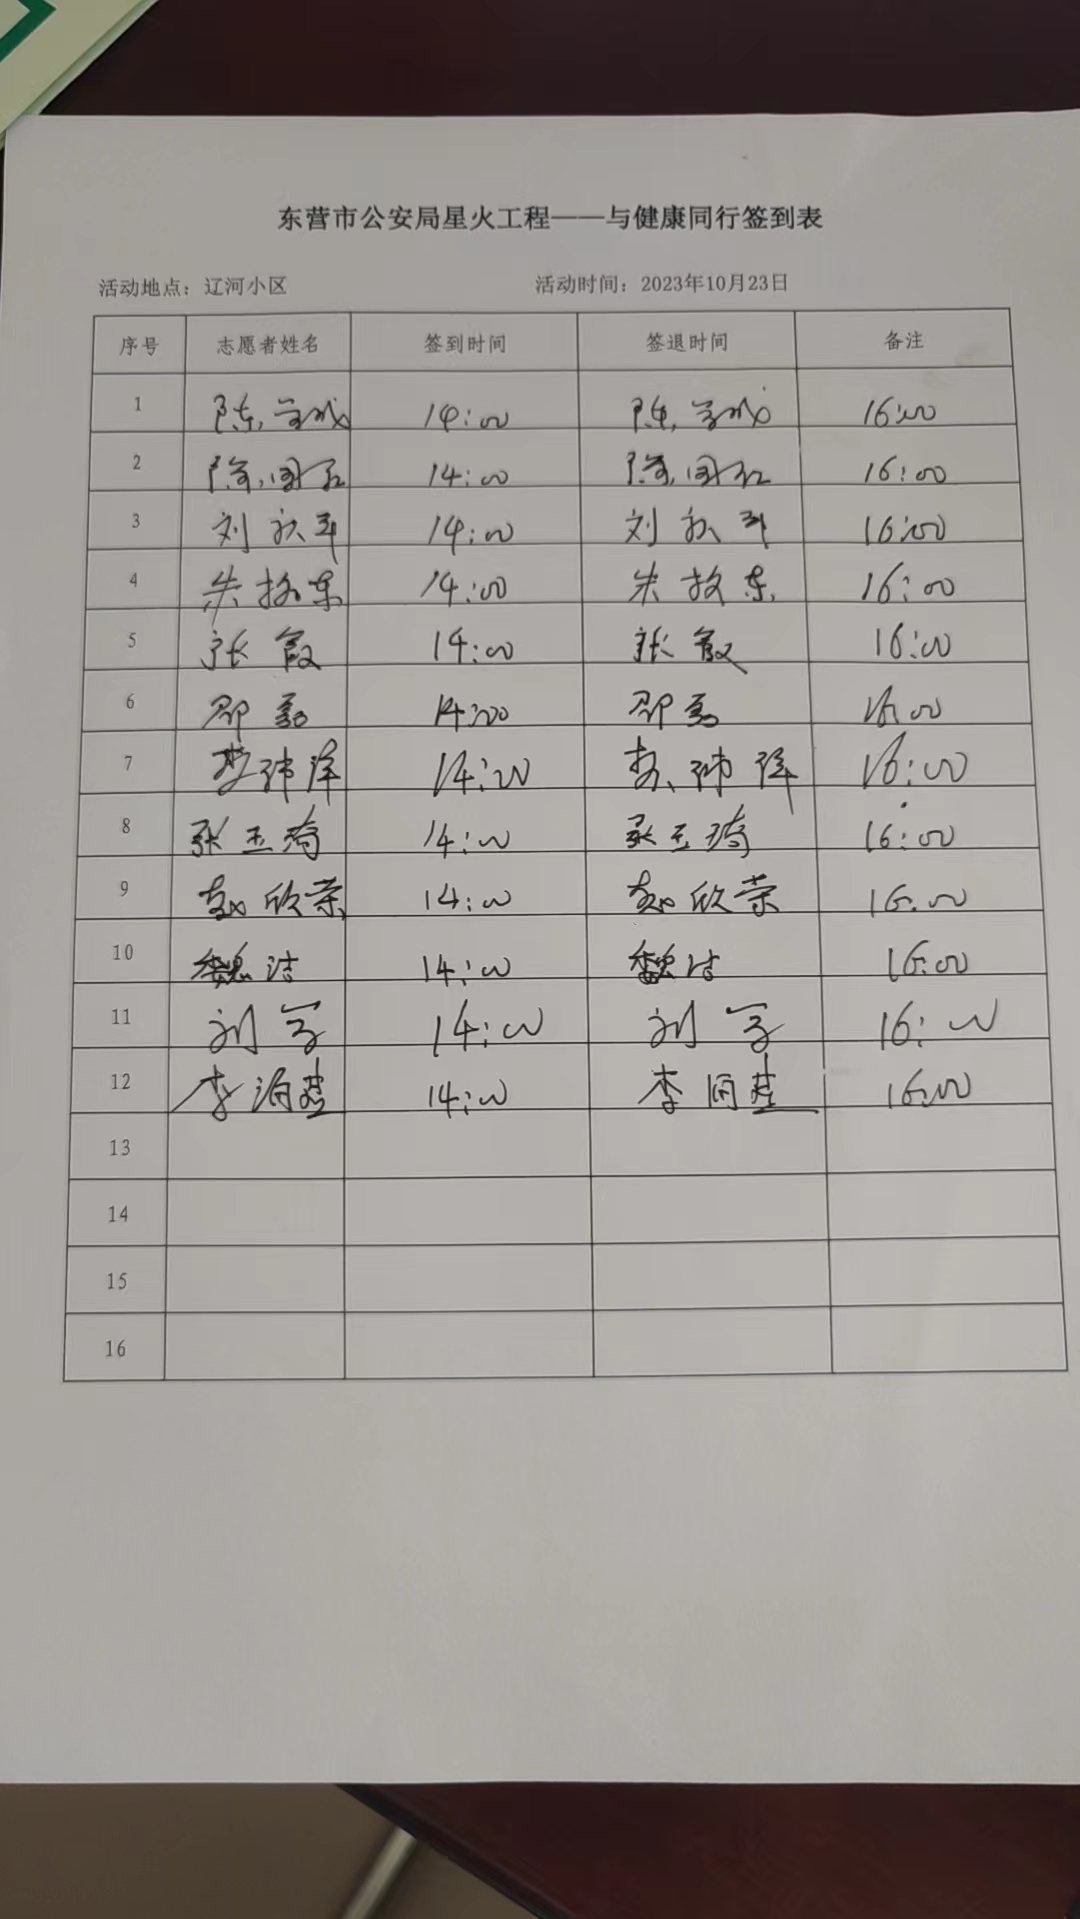 东营市公安局星火工程——与健康同行签到表
活动地点：辽河小区 活动时间：2023年10月23日
序号 志愿者姓名 签到时间 签退时间 备注
1 陈 14:00 陈 16:00
2 国 14:00 国 16:00
3 刘 14:00 刘 16:00
4 朱 东 14:00 朱 东 16:00
5 张 14:00 张 16:00
6 邵 14:00 邵 16:00
7 14:00 16:00
8 张玉琦 14:00 张玉琦 16:00
9 赵欣荣 14:00 赵欣荣 16:00
10 魏洁 14:00 魏洁 16:00
11 刘军 14:00 刘军 16:00
12 李 14:00 李 16:00
13
14
15
16